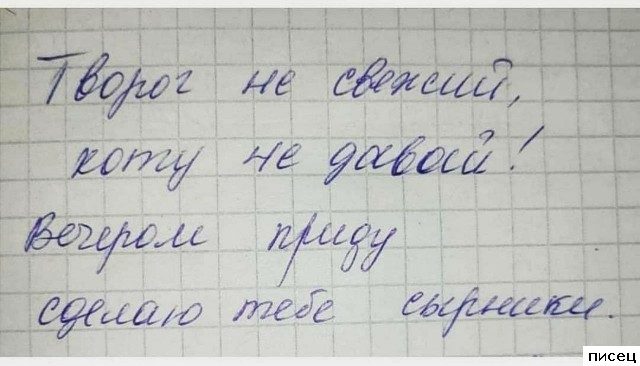 Творог не свежий,
коту не давай!
Вечером приду
сделаю тебе сырники.
писец